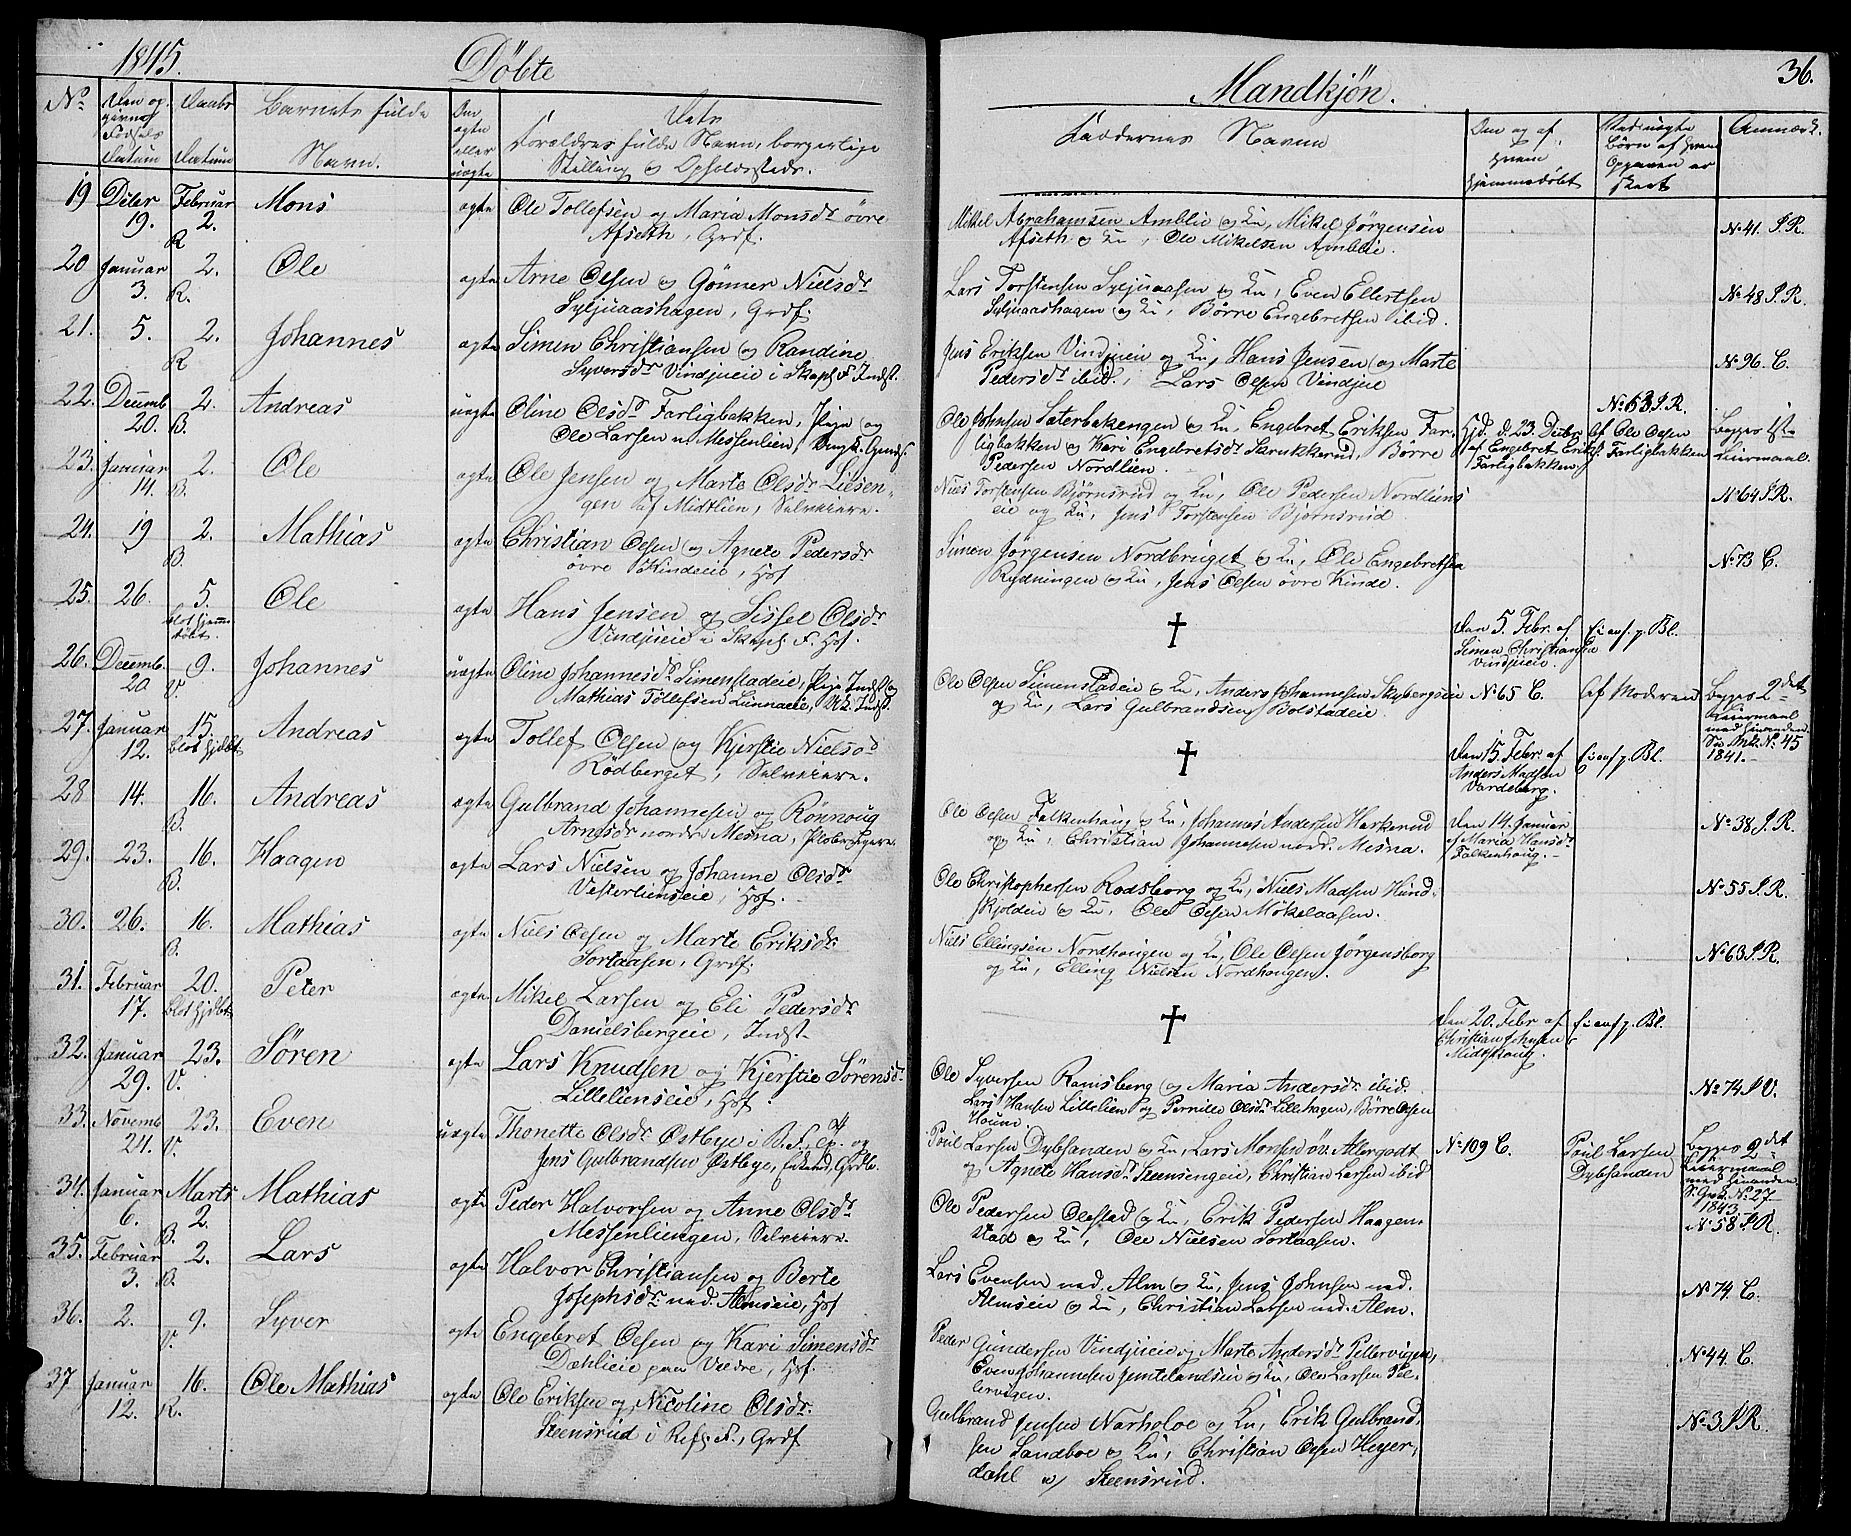 1845.
Döbte
Mandkjön.
36.
No
Den opgivne Fødsels Datum
Daabs Datum
Barnets fulde Navn.
Om ægte eller uægte
Dets Forældres fulde Navn, borgerlige Stilling og Opholdssted.
Faddernes Navne
Om og af hvem hjemmedøbt
Ved uægte Børn af hvem Opgaven er skeet
Anmærk.
19 Dcber 19. Februar 2. R Mons ægte Ole Tollefsen og Maria Monsdr øvre
Afseth, Grdf.
Mikkel Abrahamsen Amblie og Ku, Mikel Jörgensen
Afseth og Ku, Ole Mikelsen Amblie.
No 41. S.R.
20 Januar 3. 2. R. Ole ægte Arne Olsen og Gönner Nielsdr
Syljuaashagen, Grdf.
Lars Torstensen Syljuaasen og Ku, Even Ellertsen
Syljuaashagen og Ku, Börre Engebretsen ibid.
No 48 S.R.
21. 5. 2. R Johannes ægte Simen Christiansen og Randine
Syversdr Vindjueie i Skapl. F. Indst.
Jens Eriksen Vindjueie og Ku, Hans Jensen og Marte
Pedersdr ibid., Lars Olsen Vindjue
No 96 C.
22. Decemb 20. 2. B. Andreas uægte Oline Olsdr Farligbakken, Pige og
Ole Larsen n. Messenlien, Ungk. Grnds.
Ole Johnsen Sæterbakengen og Ku, Engebret Eriksen Far-
ligbakken og Kari Engebretsdr Skrukkerud, Börre
Pedersen Nordlien.
Hjd. d. 23. Dcbr. af Engebret Eriks. Farligbakken
No 53 S.R.
Af Ole Olsen Farligbakken
Begges 1ste Leiermaal
23. Januar 14. 2. B. Ole ægte Ole Jensen og Marte Olsdr Liesen-
gen af Midtlien, Selveiere.
Niels Torstensen Björnsrud og Ku, Ole Pedersen Nordliens
eie og Ku, Jens Torstensen Björnsrud
No 64 S.R.
24. 19 2. B. Mathias ægte Christian Olsen og Agnete Pedersdr
övre Kindeeie, Hsf
Simen Jörgensen Nordbruget og Ku, Ole Engebretsen
Rydningen og Ku, Jens Olsen övre Kinde.
No 73 C.
25. 26. 5. blot hjemmedøbt. Ole ægte Hans Jensen og Sissel Olsdr
Vindjueie i Skapl. F. Hsf.
†
Den 5. Febr. af Simen Christiansen Vindjueie.
Ei anf. p. Bl.
26. Decemb. 20 9. V. Johannes uægte Oline Johannesdr Simenstadeie, Pige Indst og
Mathias Tollefsen Lunnaeie, Uk. Indst.
Ole Olsen Simenstadeie og Ku, Anders Johannesen Skybergseie
og Ku, Lars Gulbrandsen Bolstadeie.
No 65 C.
Af Moderen
Begges 2det Leiermaal med hinanden. See Mk. No 45 1841.
27. Januar 12. 15. blot hjdbt Andreas ægte Tollef Olsen og Kjerstie Nielsdr
Rödberget, Selveiere.
†
Den 15. Febr. af Anders Madsen Vardeberg.
Ei anf. p. Bl.
28 14. 16. B. Andreas ægte Gulbrand Johannesen og Rönnoug
Arnesdr nordre Mesna,
Ole Olsen Falkenhaug og Ku, Johannes Andersen Harkerud
og Ku, Christian Johannesen nord. Mesna.
Den 14. Januar af Maria Hansdr Falkenhoug.
No 38 S.R.
29. 23. 16. B. Haagen ægte Lars Nielsen og Johanne Olsdr
Vesterlienseie, Hsf.
Ole Christophersen Rodsborg og Ku, Niels Madsen Hund-
skjoldeie og Ku, Ole Olsen Mökelaasen.
No 55 S.R.
30. 26. 16. B. Mathias ægte Niels Olsen og Marte Eriksdr
Sortaasen, Grdf.
Niels Ellingsen Nordhougen og Ku, Ole Olsen Jörgensborg
og Ku, Elling Nielsen Nordhougen.
No 63 S.R.
31. Februar 17. 20. blot hjdbt Peter ægte Mikel Larsen og Eli Pedersdr
Danielsbergeie, Indst.
†
Den 20. Febr af Christian Johnsen Midtskoug.
Ei anf. p. Bl.
32. Januar 29. 23. V. Sören ægte Lars Knudsen og Kjerstie Sörensdr
Lillelienseie, Hsf.
Ole Syversen Ramsberg og Maria Andersdr ibid.
Lars Hansen Lillelien og Pernille Olsdr Lillehagen, Börre Olsen
Houm.
No 74 S.V.
33. Novemb 24. 23. V. Even uægte Thonette Olsdr Østbye i B.F., Ep. og
Jens Gulbrandsen Østbye, Enkemd, Grdb.
Poul Larsen Dybsanden og Ku, Lars Monsen öv. Allergodt
og Agnete Hansdr Steensengeie, Christian Larsen ibid
No 109 C.
Poul Larsen Dybsanden
Begges 2det Leiermaal med hinanden. No 27 1843
34. Januar 6. Marts 2. B. Mathias ægte Peder Halvorsen og Anne Olsdr
Messenliengen, Selveiere.
Ole Pedersen Olestad og Ku, Erik Pedersen Haagen-
stad og Ku, Ole Nielsen Sortaasen.
No 58 S.R.
35. Februar 3. 2. B. Lars ægte Halvor Christiansen og Berte
Josephsdr ned. Almseie, Hsf
Lars Evensen ned. Alm og Ku, Jens Johnsen ned.
Almseie og Ku, Christian Larsen ned. Alm.
No 74. C.
36. 2. 9. V. Syver ægte Engebret Olsen og Kari Simensdr
Dæhlieie paa Vedre, Hsf.
Peder Gundersen Vindjueie og Marte Andersdr Pellervigen,
Even Johannesen Jemtelandseie og Ku, Ole Larsen Pel-
lervigen.
No 44. C.
37 Januar 12. 16. R. Ole Mathias ægte Ole Eriksen og Nicoline Olsdr
Steensrud i Ress. F., Grdf
Gulbrand Jensen Narholoe og Ku, Erik Gulbrand-
sen Sandboe og Ku, Christian Olsen Heyer-
dahl v/ Steensrud.
No 3 S.R.